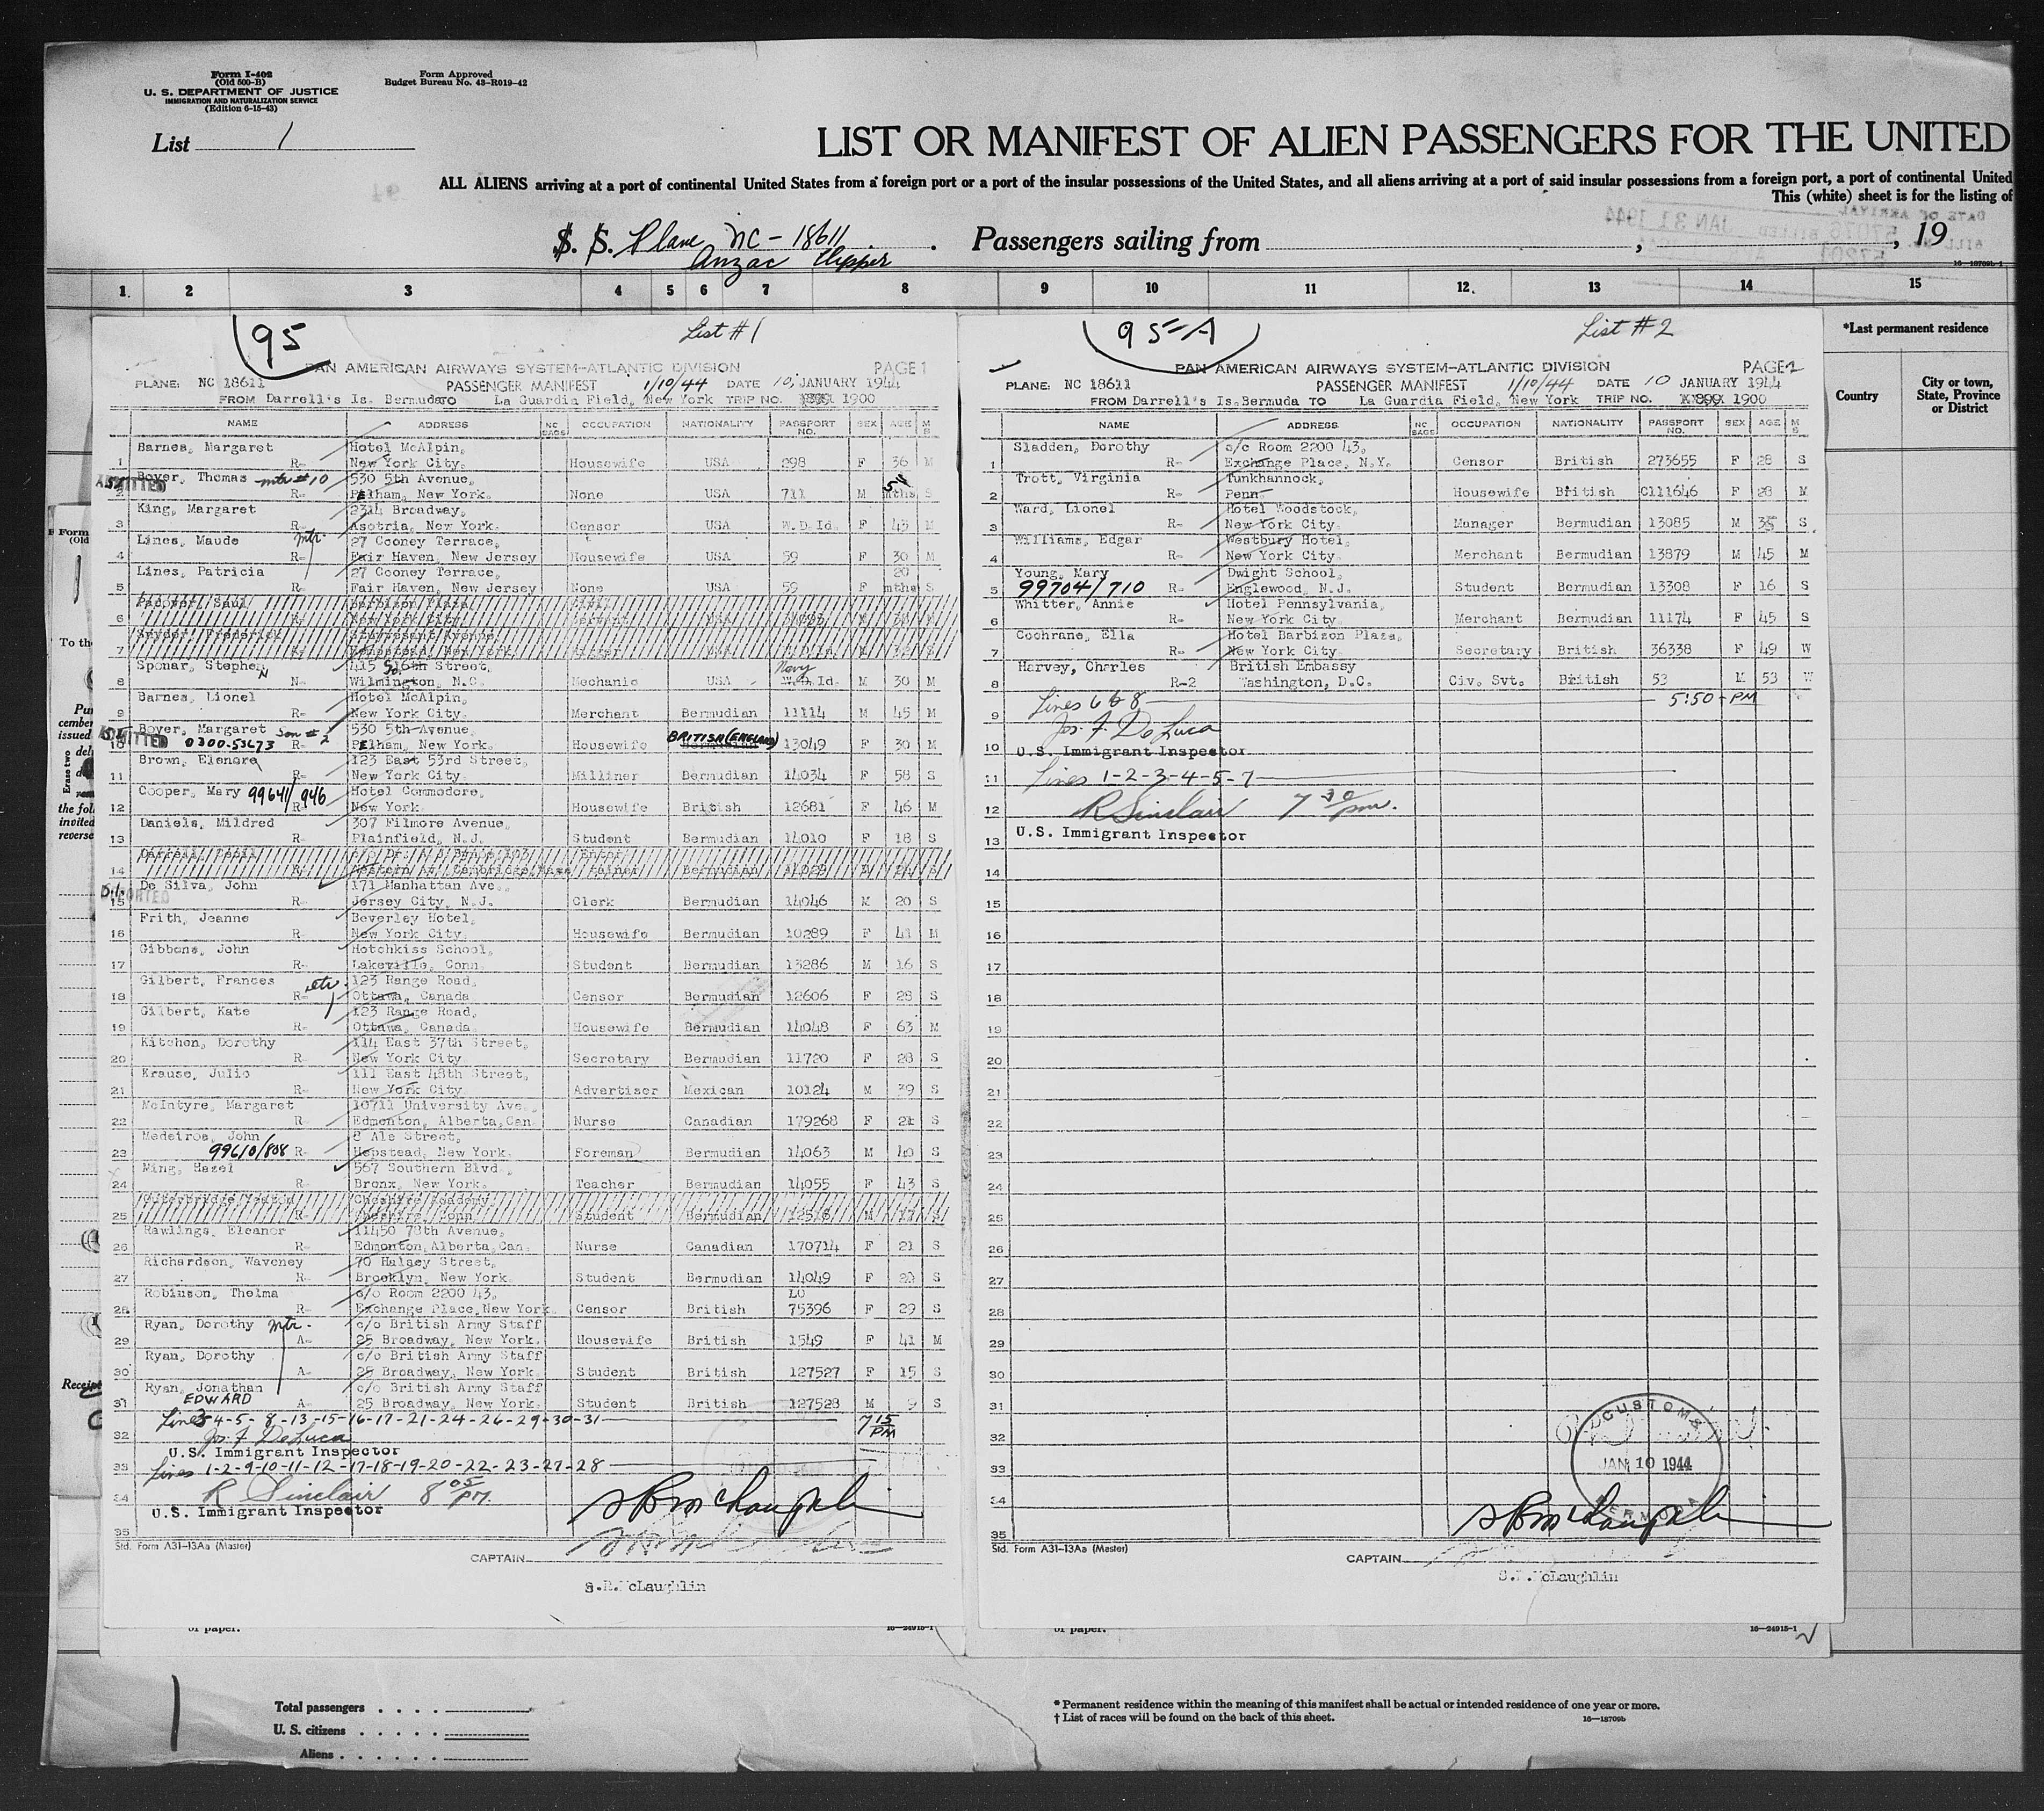 Form I-402
(Old 500-B)
U. S. DEPARTMENT OF JUSTICE
IMMIGRATION AND NATURALIZATION SERVICE
(Edition 6-15-43)
Form Approved
Budget Bureau No. 43-R019-42
List 1
LIST OR MANIFEST OF ALIEN PASSENGERS FOR THE UNITED
ALL ALIENS arriving at a port of continental United States from a foreign port or a port of the insular possessions of the United States, and all aliens arriving at a port of said insular possessions from a foreign port, a port of continental United
This (white) sheet is for the listing of
S. S. Plane NC-18611 Passengers sailing from , , 19
Anzac Clipper
1 2 3 4 5 6 7 8 9 10 11 12 13 14 15
*Last permanent residence
Country
City or town, State, Province or District
95 List #1
PAN AMERICAN AIRWAYS SYSTEM-ATLANTIC DIVISION PAGE 1
PLANE: NC 18611 PASSENGER MANIFEST 1/10/44 DATE 10, JANUARY 1944
FROM Darrell's Is. Bermuda TO La Guardia Field, New York TRIP NO. 1900
NAME ADDRESS NC BAGS OCCUPATION NATIONALITY PASSPORT NO. SEX AGE M S
Barnes, Margaret Hotel McAlpin,
1 R- New York City. Housewife USA 298 F 36 M
Boyer, Thomas mtr #10 530 5th Avenue,
2 R- Pelham, New York. None USA 711 M 5 mths S
King, Margaret 2314 Broadway,
3 R- Asotria, New York. Censor USA W.D. Id. F 43 M
Lines, Maude mtr. 27 Cooney Terrace,
4 R- Fair Haven, New Jersey Housewife USA 59 F 30 M
Lines, Patricia 27 Cooney Terrace, 20
5 R- Fair Haven, New Jersey None USA 59 F mths S
Padover, Saul Barbizon Plaza
6 R- New York City. Servant USA
Snyder, Frederick Stuyvesant Avenue
7 R- Hempstead, New York
Sponar, Stephen 415 So. 16th Street, Navy
8 N- Wilmington, N.C. Mechanic USA W.D. Id. M 30 M
Barnes, Lionel Hotel McAlpin,
9 R- New York City. Merchant Bermudian 11114 M 45 M
Boyer, Margaret Son #2 530 5th Avenue BRITISH (ENGLAND)
10 0300-53673 R- Pelham, New York. Housewife 13049 F 30 M
Brown, Elenore 123 East 53rd Street,
11 R- New York City. Milliner Bermudian 14034 F 58 S
Cooper, Mary 99641/946 Hotel Commodore,
12 R- New York. Housewife British 12681 F 46 M
Daniels, Mildred 307 Filmore Avenue,
13 R- Plainfield, N.J. Student Bermudian 14010 F 18 S
Darrell, Cecil
14 R- Western Av. Cambridge, Mass Bermudian
De Silva, John 171 Manhattan Ave.,
15 R- Jersey City, N.J. Clerk Bermudian 14046 M 20 S
Frith, Jeanne Beverley Hotel,
16 R- New York City. Housewife Bermudian 10289 F 41 M
Gibbons, John Hotchkiss School,
17 R- Lakeville, Conn. Student Bermudian 13286 M 16 S
Gilbert, Frances 123 Range Road,
18 R- Ottawa, Canada Censor Bermudian 12606 F 28 S
Gilbert, Kate 123 Range Road,
19 R- Ottawa, Canada. Housewife Bermudian 14048 F 63 M
Kitchen, Dorothy 114 East 37th Street,
20 R- New York City Secretary Bermudian 11720 F 28 S
Krause, Julio 111 East 48th Street,
21 R- New York City. Advertiser Mexican 10124 M 39 S
McIntyre, Margaret 10711 University Ave.
22 R- Edmonton, Alberta, Can. Nurse Canadian 179268 F 21 S
Medeiros, John 8 Ale Street,
23 99610/808 R- Hepstead, New York. Foreman Bermudian 14063 M 40 S
Ming, Hazel 567 Southern Blvd.,
24 R- Bronx, New York. Teacher Bermudian 14055 F 43 S
Outerbridge, Yeaton Cheshire Academy
25 R- Cheshire, Conn Student Bermudian 12518 M 17 S
Rawlings, Eleanor 11450 78th Avenue,
26 R- Edmonton, Alberta, Can. Nurse Canadian 170714 F 21 S
Richardson, Waveney 70 Halsey Street,
27 R- Brooklyn, New York. Student Bermudian 14049 F 20 S
Robinson, Thelma c/o Room 2200 43, LO
28 R- Exchange Place, New York. Censor British 75396 F 29 S
Ryan, Dorothy mtr. c/o British Army Staff
29 A- 25 Broadway, New York. Housewife British 1549 F 41 M
Ryan, Dorothy c/o British Army Staff
30 A- 25 Broadway, New York. Student British 127527 F 15 S
Ryan, Jonathan c/o British Army Staff
31 EDWARD A- 25 Broadway, New York. Student British 127528 M 9 S
Lines 3-4-5-8-13-15-16-17-21-24-26-29-30-31 7 15 PM
32 Jos. F. DeLuca
U.S. Immigrant Inspector
33 Lines 1-2-9-10-11-12-17-18-19-20-22-23-27-28
34 R Sinclair 8 05 PM.
U.S. Immigrant Inspector
35
Std. Form A31-13Aa (Master)
CAPTAIN
S.B. McLaughlin
95-A List #2
PAN AMERICAN AIRWAYS SYSTEM-ATLANTIC DIVISION PAGE 2
PLANE: NC 18611 PASSENGER MANIFEST 1/10/44 DATE 10 JANUARY 1944
FROM Darrell's Is. Bermuda TO La Guardia Field, New York TRIP NO. 1900
NAME ADDRESS NC BAGS OCCUPATION NATIONALITY PASSPORT NO. SEX AGE M S
Sladden, Dorothy c/o Room 2200 43,
1 R- Exchange Place, N.Y. Censor British 273655 F 28 S
Trott, Virginia Tunkhannock,
2 R- Penn. Housewife British C111646 F 28 M
Ward, Lionel Hotel Woodstock,
3 R- New York City. Manager Bermudian 13085 M 35 S
Williams, Edgar Westbury Hotel,
4 R- New York City. Merchant Bermudian 13879 M 45 M
Young, Mary Dwight School,
5 99704/710 R- Englewood, N.J. Student Bermudian 13308 F 16 S
Whitter, Annie Hotel Pennsylvania,
6 R- New York City. Merchant Bermudian 11174 F 45 S
Cochrane, Ella Hotel Barbizon Plaza,
7 R- New York City. Secretary British 36338 F 49 W
Harvey, Charles British Embassy
8 R-2 Washington, D.C. Civ. Svt. British 53 M 53 W
Lines 6 & 8 5:50 - PM
9 Jos. F. DeLuca
10 U.S. Immigrant Inspector
11 Lines 1-2-3-4-5-7
12 R Sinclair 7 30 pm.
13 U.S. Immigrant Inspector
14
15
16
17
18
19
20
21
22
23
24
25
26
27
28
29
30
31
32
33
34
35
CUSTOMS
JAN 10 1944
BERMUDA
Std. Form A31-13Aa (Master)
CAPTAIN
McLaughlin
of paper. 16-24915-1
of paper. 16-24915-1
Total passengers
U. S. citizens
Aliens
* Permanent residence within the meaning of this manifest shall be actual or intended residence of one year or more.
† List of races will be found on the back of this sheet. 16-18709b